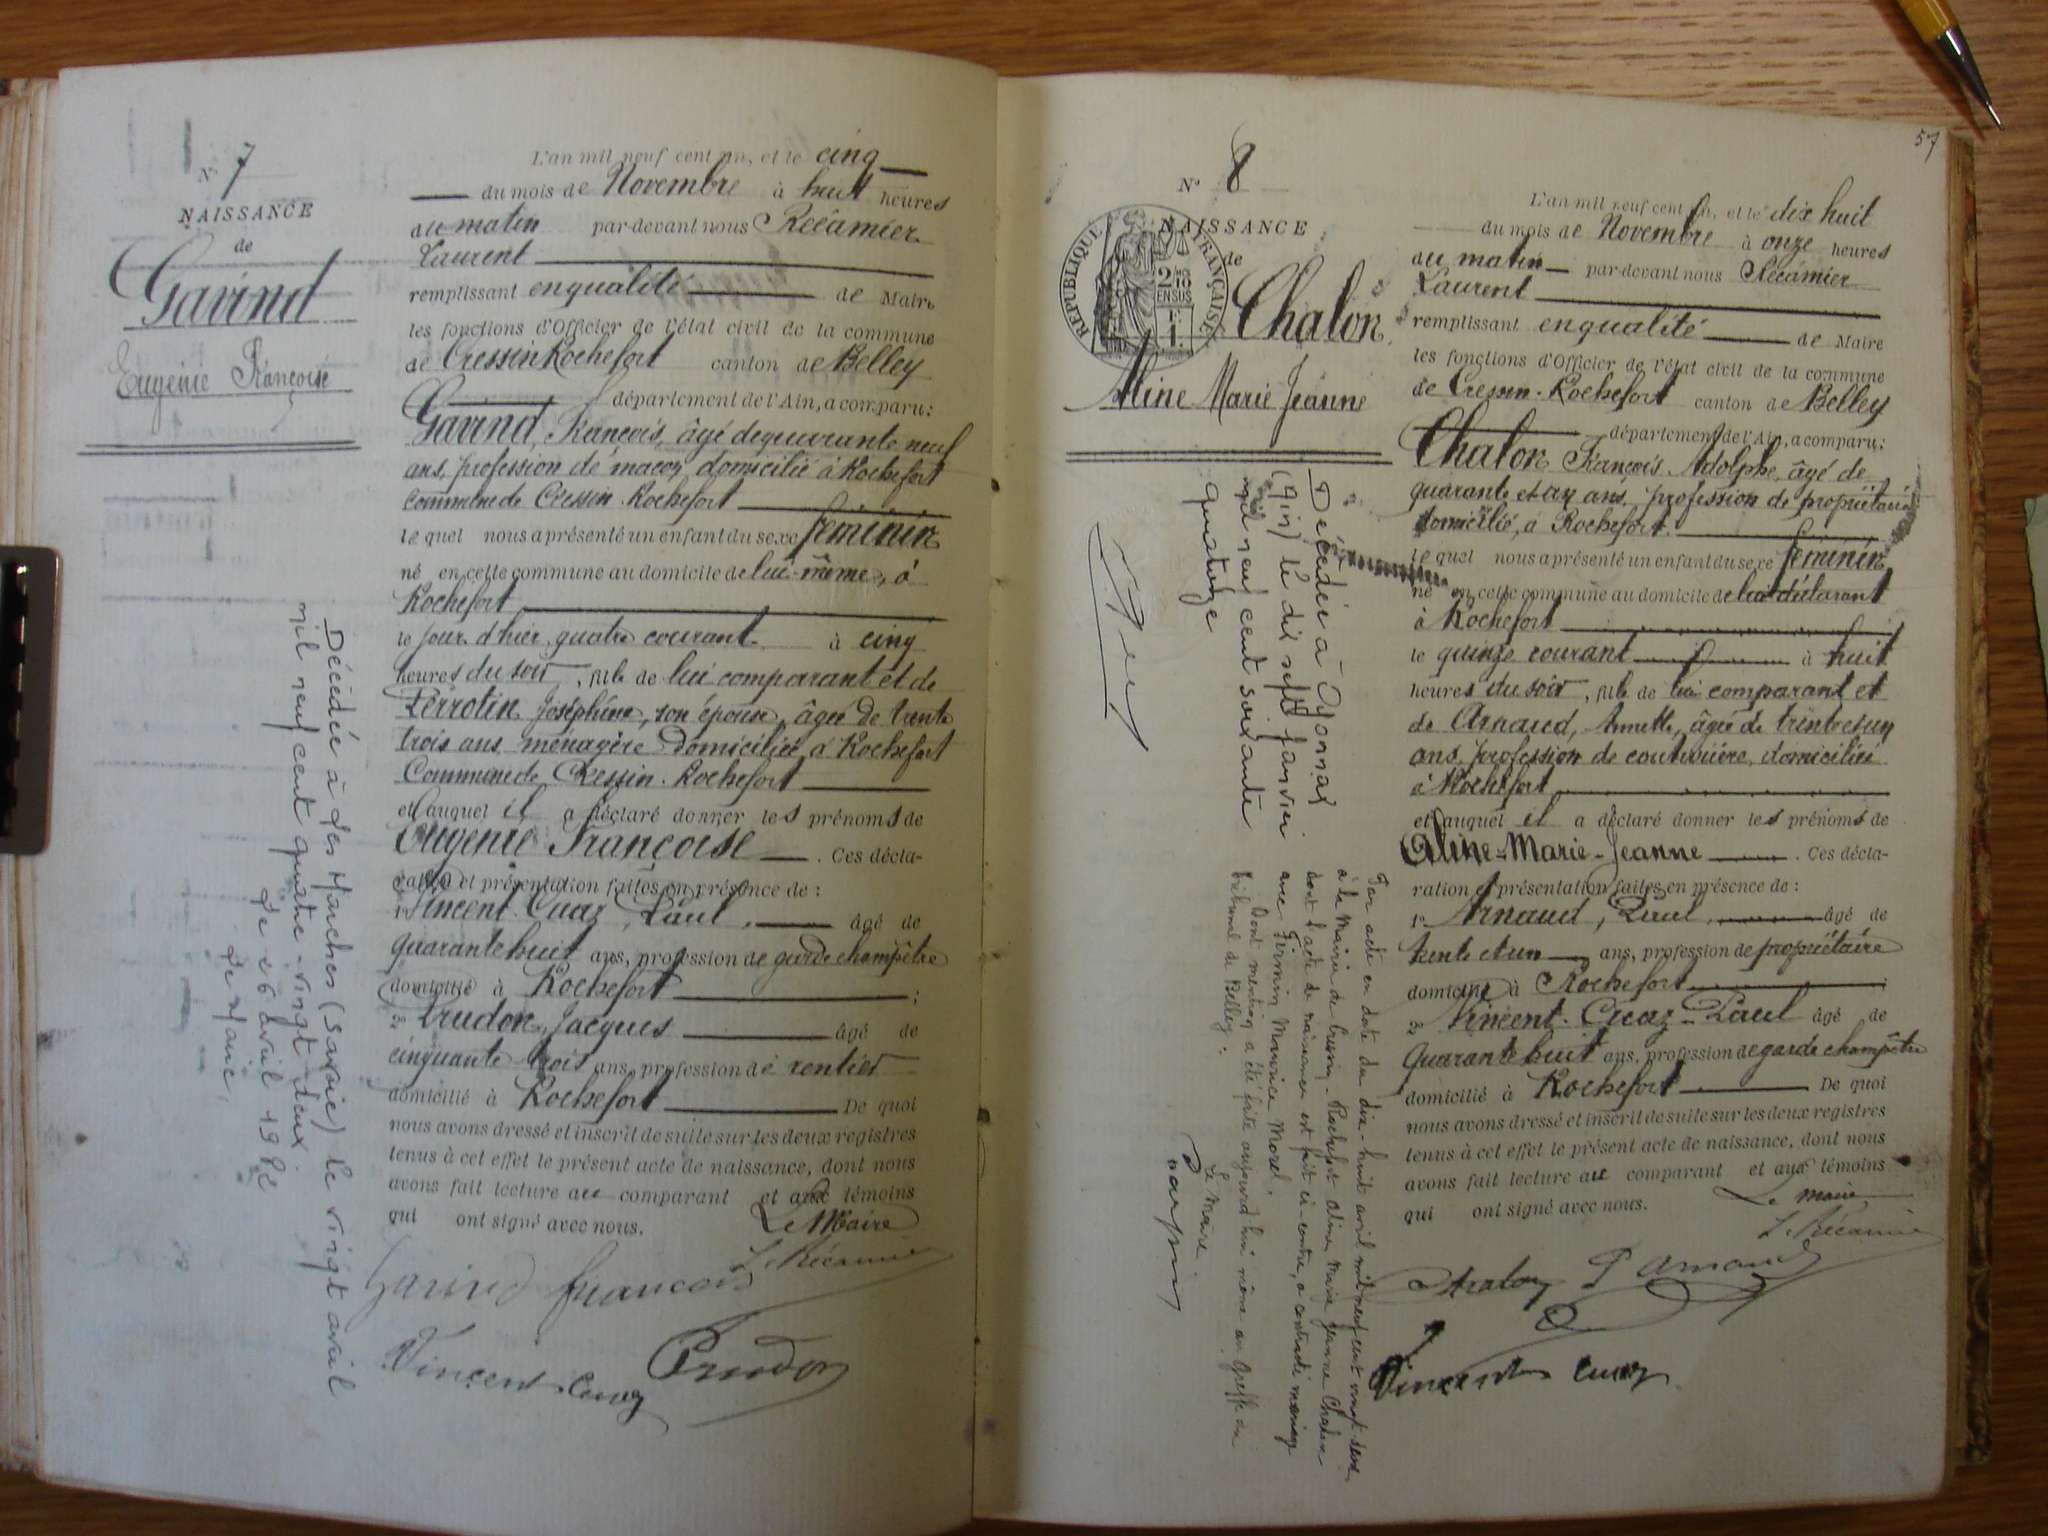 N° 7
NAISSANCE
de
Gavind
Eugénie Françoise
L'an mil neuf cent un, et le cinq
du mois de Novembre à huit heures
du matin par-devant nous Récamier
Laurent
remplissant en qualité de Maire
les fonctions d'Officier de l'état civil de la commune
de Cressin Rochefort canton de Belley
département de l'Ain, a comparu:
Gavind, François, âgé de quarante neuf
ans, profession de maçon, domicilié à Rochefort
commune de Cressin-Rochefort
le quel nous a présenté un enfant du sexe féminin
né en cette commune au domicile de lui-même, à
Rochefort
le jour d'hier, quatre courant à cinq
heures du soir, fille de lui comparant et de
Perrotin Joséphine, son épouse, âgée de trente
trois ans, ménagère domiciliée à Rochefort
Commune de Cressin-Rochefort
et auquel il a déclaré donner les prénoms de
Eugénie Françoise. Ces décla-
ration et présentation faites en présence de:
1° Vincent-Cuaz, Paul, âgé de
quarante huit ans, profession de garde champêtre
domicilié à Rochefort;
2° Prudon, Jacques âgé de
cinquante trois ans, profession de rentier
domicilié à Rochefort De quoi
nous avons dressé et inscrit de suite sur les deux registres
tenus à cet effet le présent acte de naissance, dont nous
avons fait lecture au comparant et aux témoins
qui ont signé avec nous. Le Maire
L. Récamier
Gavind françois
Vincent Cuaz Prudon
Décédée à Les Marches (Savoie) le vingt avril
mil neuf cent quatre-vingt deux.
Le 26 avril 1982
Le Maire,
57
N° 8
NAISSANCE
de
RÉPUBLIQUE FRANÇAISE
2/10
EN SUS
Chalon
Aline Marie Jeanne
L'an mil neuf cent un, et le dix huit
du mois de Novembre à onze heures
du matin par-devant nous Récamier
Laurent
remplissant en qualité de Maire
les fonctions d'Officier de l'état civil de la commune
de Cressin-Rochefort canton de Belley
département de l'Ain, a comparu:
Chalon François Adolphe, âgé de
quarante et un ans, profession de propriétaire
domicilié, à Rochefort.
le quel nous a présenté un enfant du sexe féminin
né en cette commune au domicile de lui déclarant
à Rochefort
le quinze courant à huit
heures du soir, fille de lui comparant et
de Arnaud, Annette, âgée de trente et un
ans, profession de couturière, domiciliée
à Rochefort
et auquel il a déclaré donner les prénoms de
Aline-Marie-Jeanne. Ces décla-
ration et présentation faites en présence de:
1° Arnaud, Paul, âgé de
trente et un ans, profession de propriétaire
domicilié à Rochefort
2° Vincent-Cuaz-Paul âgé de
Quarante huit ans, profession de garde champêtre
domicilié à Rochefort De quoi
nous avons dressé et inscrit de suite sur les deux registres
tenus à cet effet le présent acte de naissance, dont nous
avons fait lecture au comparant et aux témoins
qui ont signé avec nous. Le maire
L. Récamier
Chalon P Arnaud
Vincent Cuaz
Décédée à Oyonnax
(Ain) le dix sept janvier
mil neuf cent soixante
quatorze
Par acte en date du dix-huit avril mil neuf cent vingt
à la Mairie de Cressin-Rochefort Aline Marie Jeanne Chalon
dont l'acte de naissance est fait ci-contre, a contracté mariage
avec Firmin Maurice Morel.
Dont mention a été faite aujourd'hui même au Greffe du
tribunal de Belley.
Le Maire